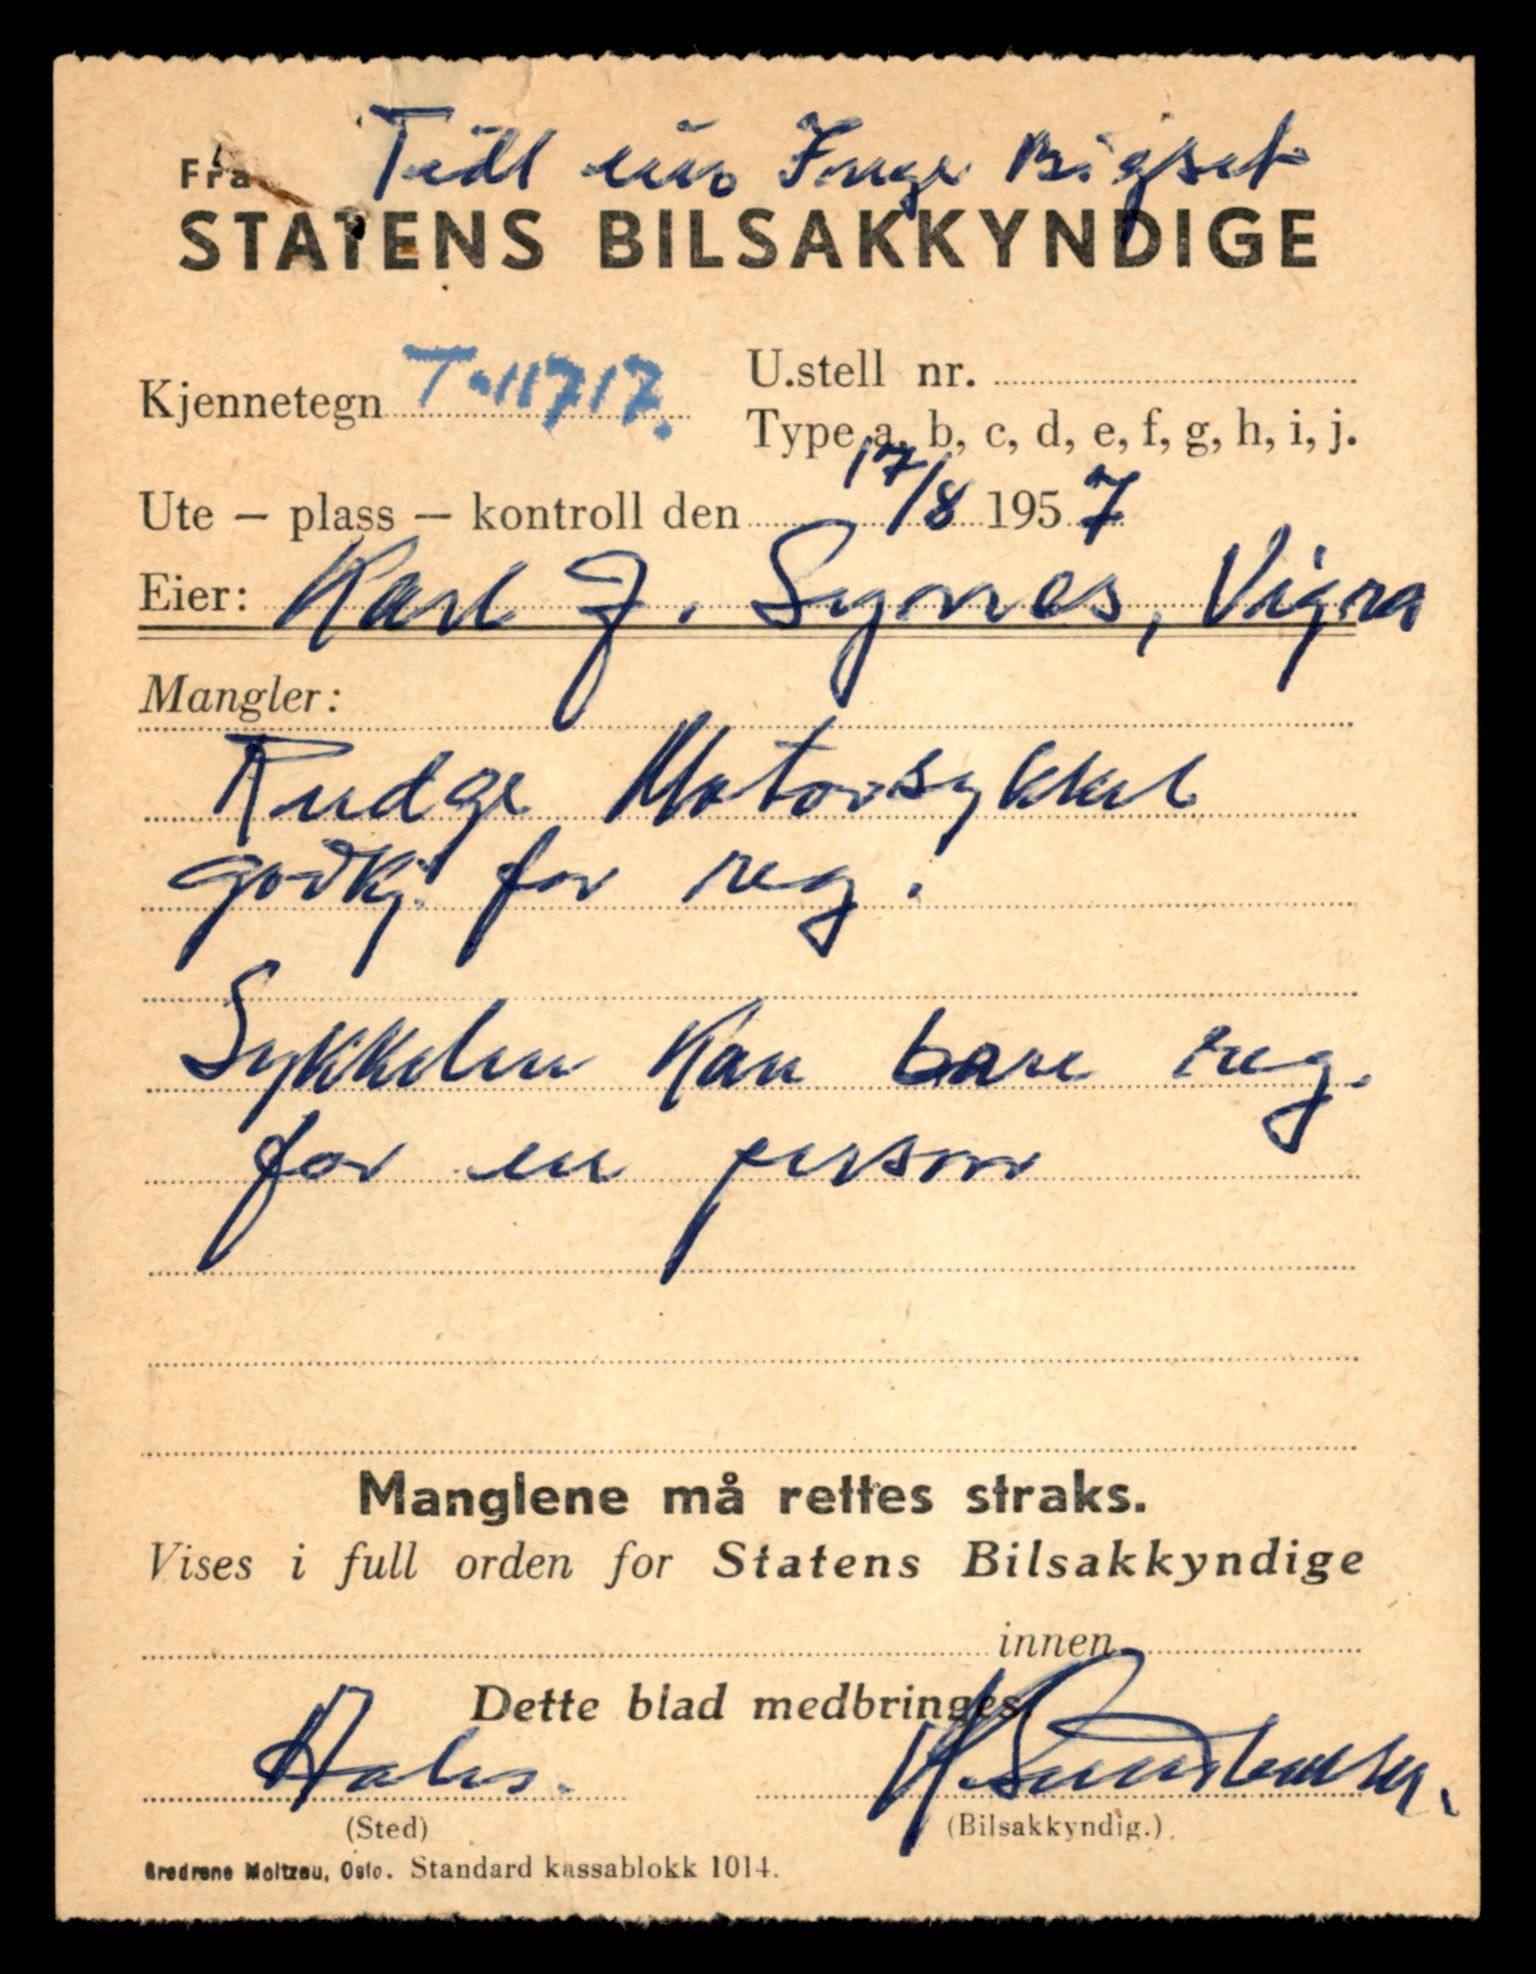 Tidl eier Inge Bigset
Fra
STATENS BILSAKKYNDIGE
Kjennetegn T-11717.
U.stell nr.
Type a, b, c, d, e, f, g, h, i, j.
Ute – plass – kontroll den 17/8 1957
Eier: Karl J. Synnes, Vigra
Mangler:
Rudge Motorsykkel
godkj. for reg.
Sykkelen kan bare reg.
for en person
Manglene må rettes straks.
Vises i full orden for Statens Bilsakkyndige
innen
Dette blad medbringes
(Sted)
(Bilsakkyndig.)
Brødrene Moltzau, Oslo. Standard kassablokk 1014.